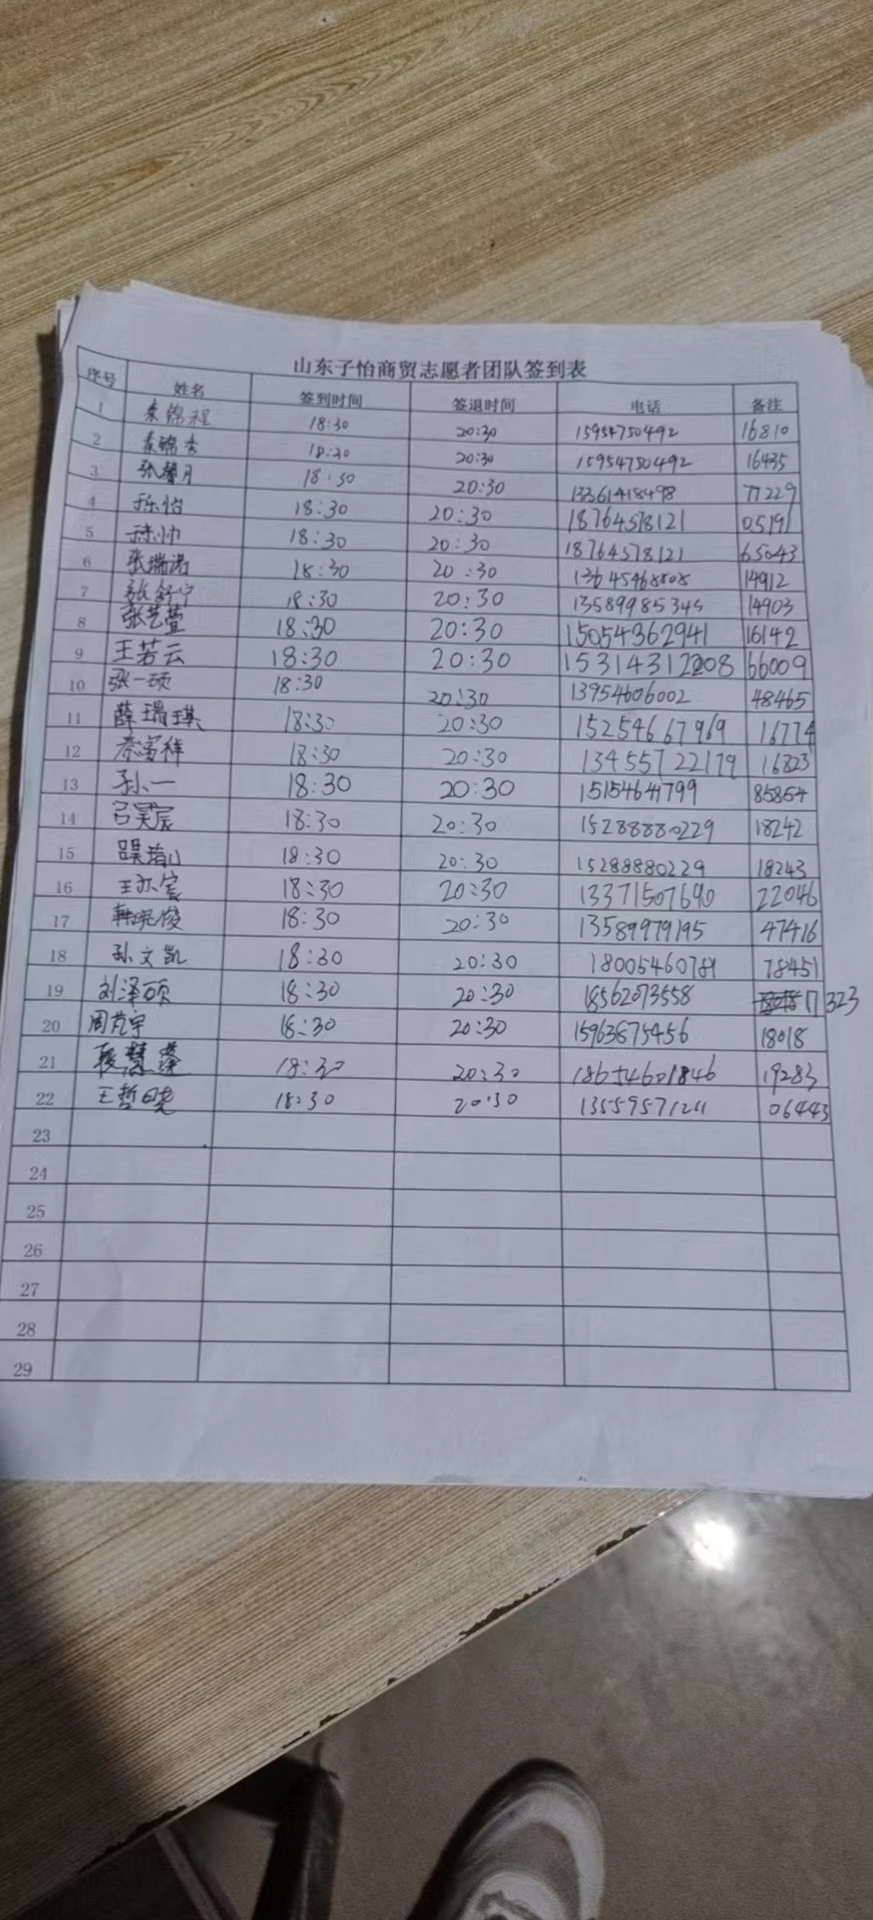 山东子怡商贸志愿者团队签到表
序号 姓名 签到时间 签退时间 电话 备注
1 秦锦程 18:30 20:30 15954750492 16810
2 秦锦秀 18:30 20:30 15954750492 16435
3 张馨月 18:30 20:30 13361418498 77229
4 孙怡 18:30 20:30 18764578121 05191
5 孙帅 18:30 20:30 18764578121 65043
6 张瑞诺 18:30 20:30 13645468808 14912
7 张舒宁 18:30 20:30 13589985345 14903
8 张艺萱 18:30 20:30 15054362941 16142
9 王若云 18:30 20:30 15314312208 66009
10 张一硕 18:30 20:30 13954606002 48465
11 薛瑞琪 18:30 20:30 15254667969 16774
12 18:30 20:30 13455722179 16823
13 孙一 18:30 20:30 15154641799 85854
14 弓昊宸 18:30 20:30 15288880229 18242
15 18:30 20:30 15288880229 18243
16 王亦宸 18:30 20:30 13371507690 22046
17 韩晓俊 18:30 20:30 13589979195 47416
18 孙文凯 18:30 20:30 18005460789 78451
19 刘泽硕 18:30 20:30 18562073558 17323
20 周芃宇 18:30 20:30 15963675456 18018
21 18:30 20:30 18654601846 19283
22 王哲晓 18:30 20:30 13559571211 06443
23
24
25
26
27
28
29